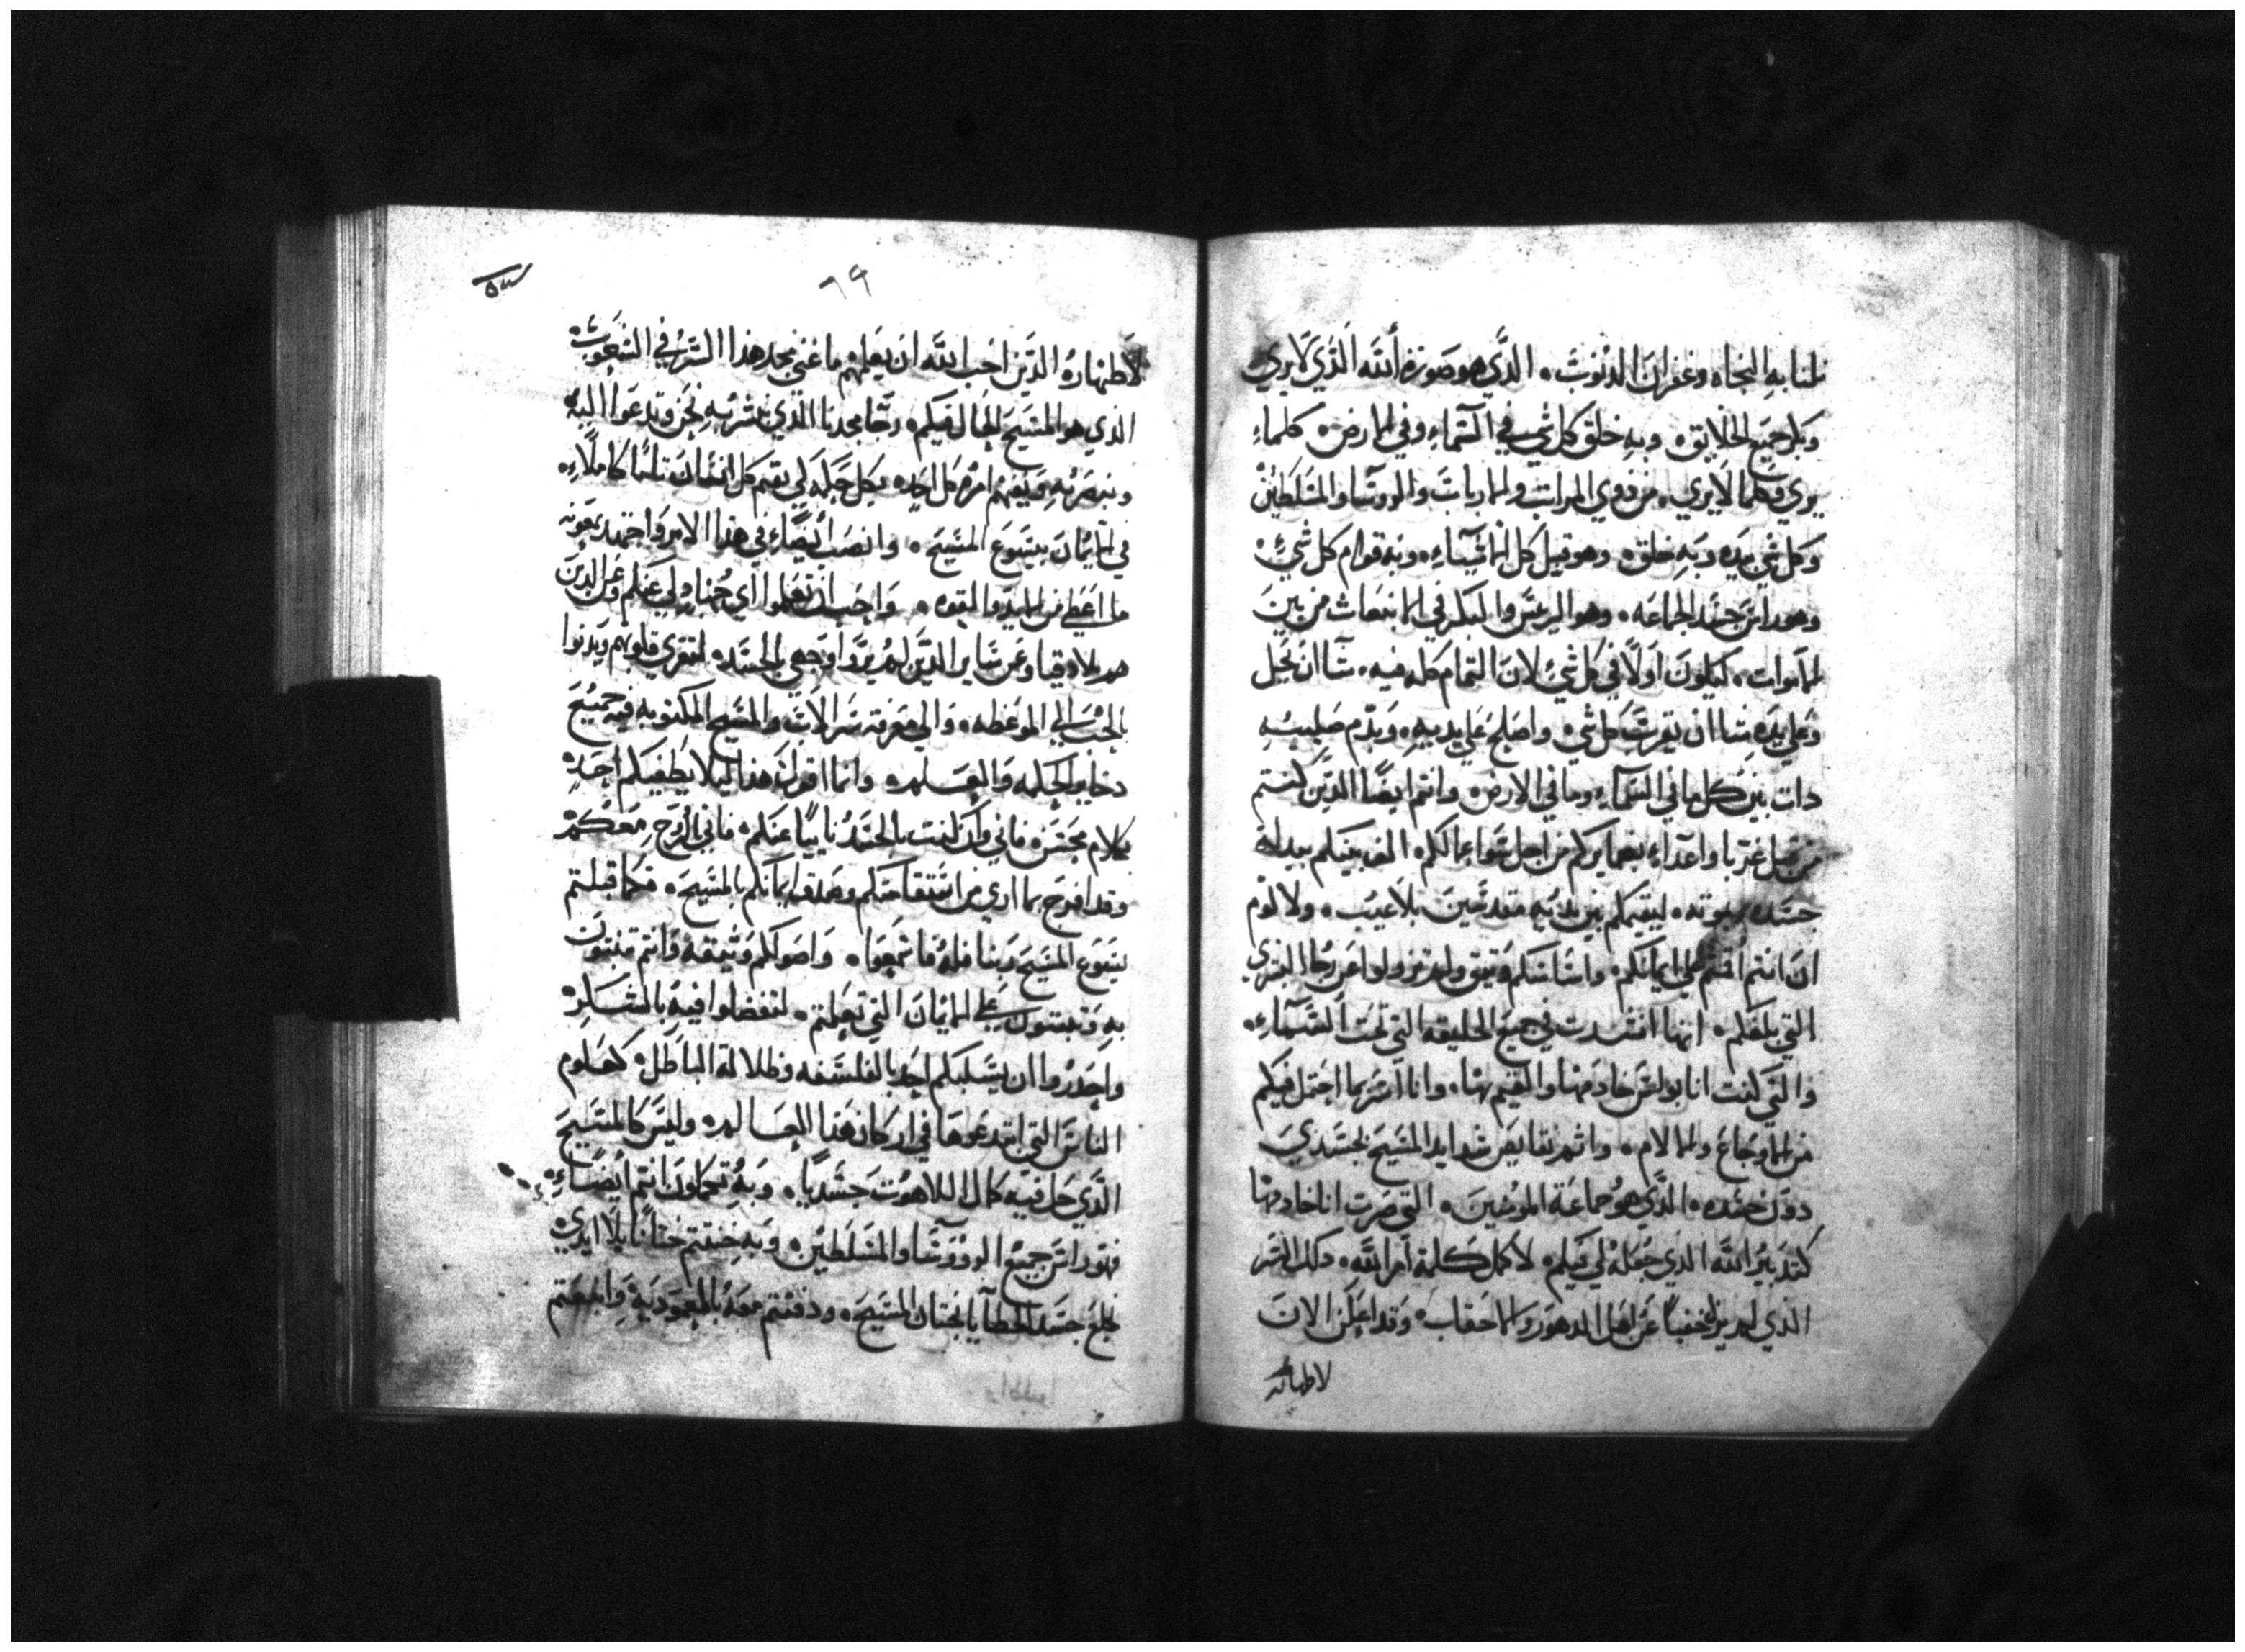 لنا به النجاه وغفران الدنوب. الدي هو صورة الله الدي لا يري
وبكر جميع الخلايق. وبه خلق كل شي في السماء وفي الارض. كلماء
يري وكلما لا يري. من دوي المراتب والارباب والروسا والمسلطين
وكل شي بيده وبه خلق. وهو قبل كل الاشياء. وبه قوام كل شي.
وهو راس جسد الجماعه. وهو الريس والبكر في الانبعاث من بين
الاموات. كيلون اولا في كل شي لان التمام كله فيه. شا ان يحل
وعلي يده شا ان يقرب كل شي. واصلح علي يديه. وبدم صليبه
دات بين كل ما في السماء وما في الارض. وانتم ايضا الدين كنتم
من قبل غربا واعداء بضمايركم من اجل سوا عمالكم. الف بينكم ببدله
جسده وموته. ليقيمكم بين يديه مقدسين بلا عيب. ولا لوم
ان انتم اقمتم علي ايمانكم. واساسكم وتيق ولم تزولوا عن رجا البشري
التي بلغتكم. انها انتشرت في جميع الخليقه التي تحت السماء.
والتي كنت انا بولس خادمها والقيم بها. وانا اسر بما احتمل فيكم
من الاوجاع والالام. واتمم نقايص شدايد المسيح بجسدي
دون جسده. الدي هو جماعة المومنين. التي صرت انا خادمها
كتدبير الله الدي جعله لي فيكم. لا كمل كلمة امر الله. دلك السر
الدي لم يزل خفيا عن اهل الدهور والاحقاب. وقد اعلن الان
لاطهاره
٦٩
لاطهاره الدين احب الله ان يعلمهم ما غني مجد هذا السر في الشعوب
الدي هو المسيح الحال فيكم. رجا مجدنا الدي نبشر به نحن وندعوا اليه
ونبصر به ونفهم امره كل احد. بكل حكمه لي نقيم كل انسان تاما كاملاء.
في الايمان بيسوع المسيح. وانصب ايضاء في هدا الامر واجتهد بمعونه
ما اعطي من الايد والقوه. واحب ان تعلموا اي جهاد لي عنكم وعن الدين
هم بلادقيا وعن ساير الدين لم يروا وجهي بالجسد. لتتعزي قلوبهم ويدنوا
بالحب الي الموعظه. والي معرفة سر الاب والمسيح المكنوبه فيه جميع
دخاير الحكمه والعلم. وانما اقول هدا ليلا يطغيكم احد.
بكلام مجتن. فاني وان كنت بالجسد نايبا عنكم. فاني بالروح معكم
وقد افرح بما اري من استقامتكم وصدق ايمانكم بالمسيح. فكما قبلتم
يسوع المسيح ربنا فله فاتبعوا. واصولكم وتيقه وانتم تبنون
به وتبتون علي الايمان التي تعلمتم. لتفضلوا فيه بالشكر
واحدروا ان يسلبكم احد بالفلسفه وظلالة الباطل. كعلوم
الناس التي ابتدعوها في اركان هدا العالم. وليس كالمسيح
الدي حل فيه كمال اللاهوت جسديا. وبه تكملون انتم ايضاء.
فهو راس جميع الروسا والمسلطين. وبه ختنتم ختانا بلا ايدي
بخلع جسد الخطايا بختان المسيح. ودفنتم معه بالمعموديه وانبعتم